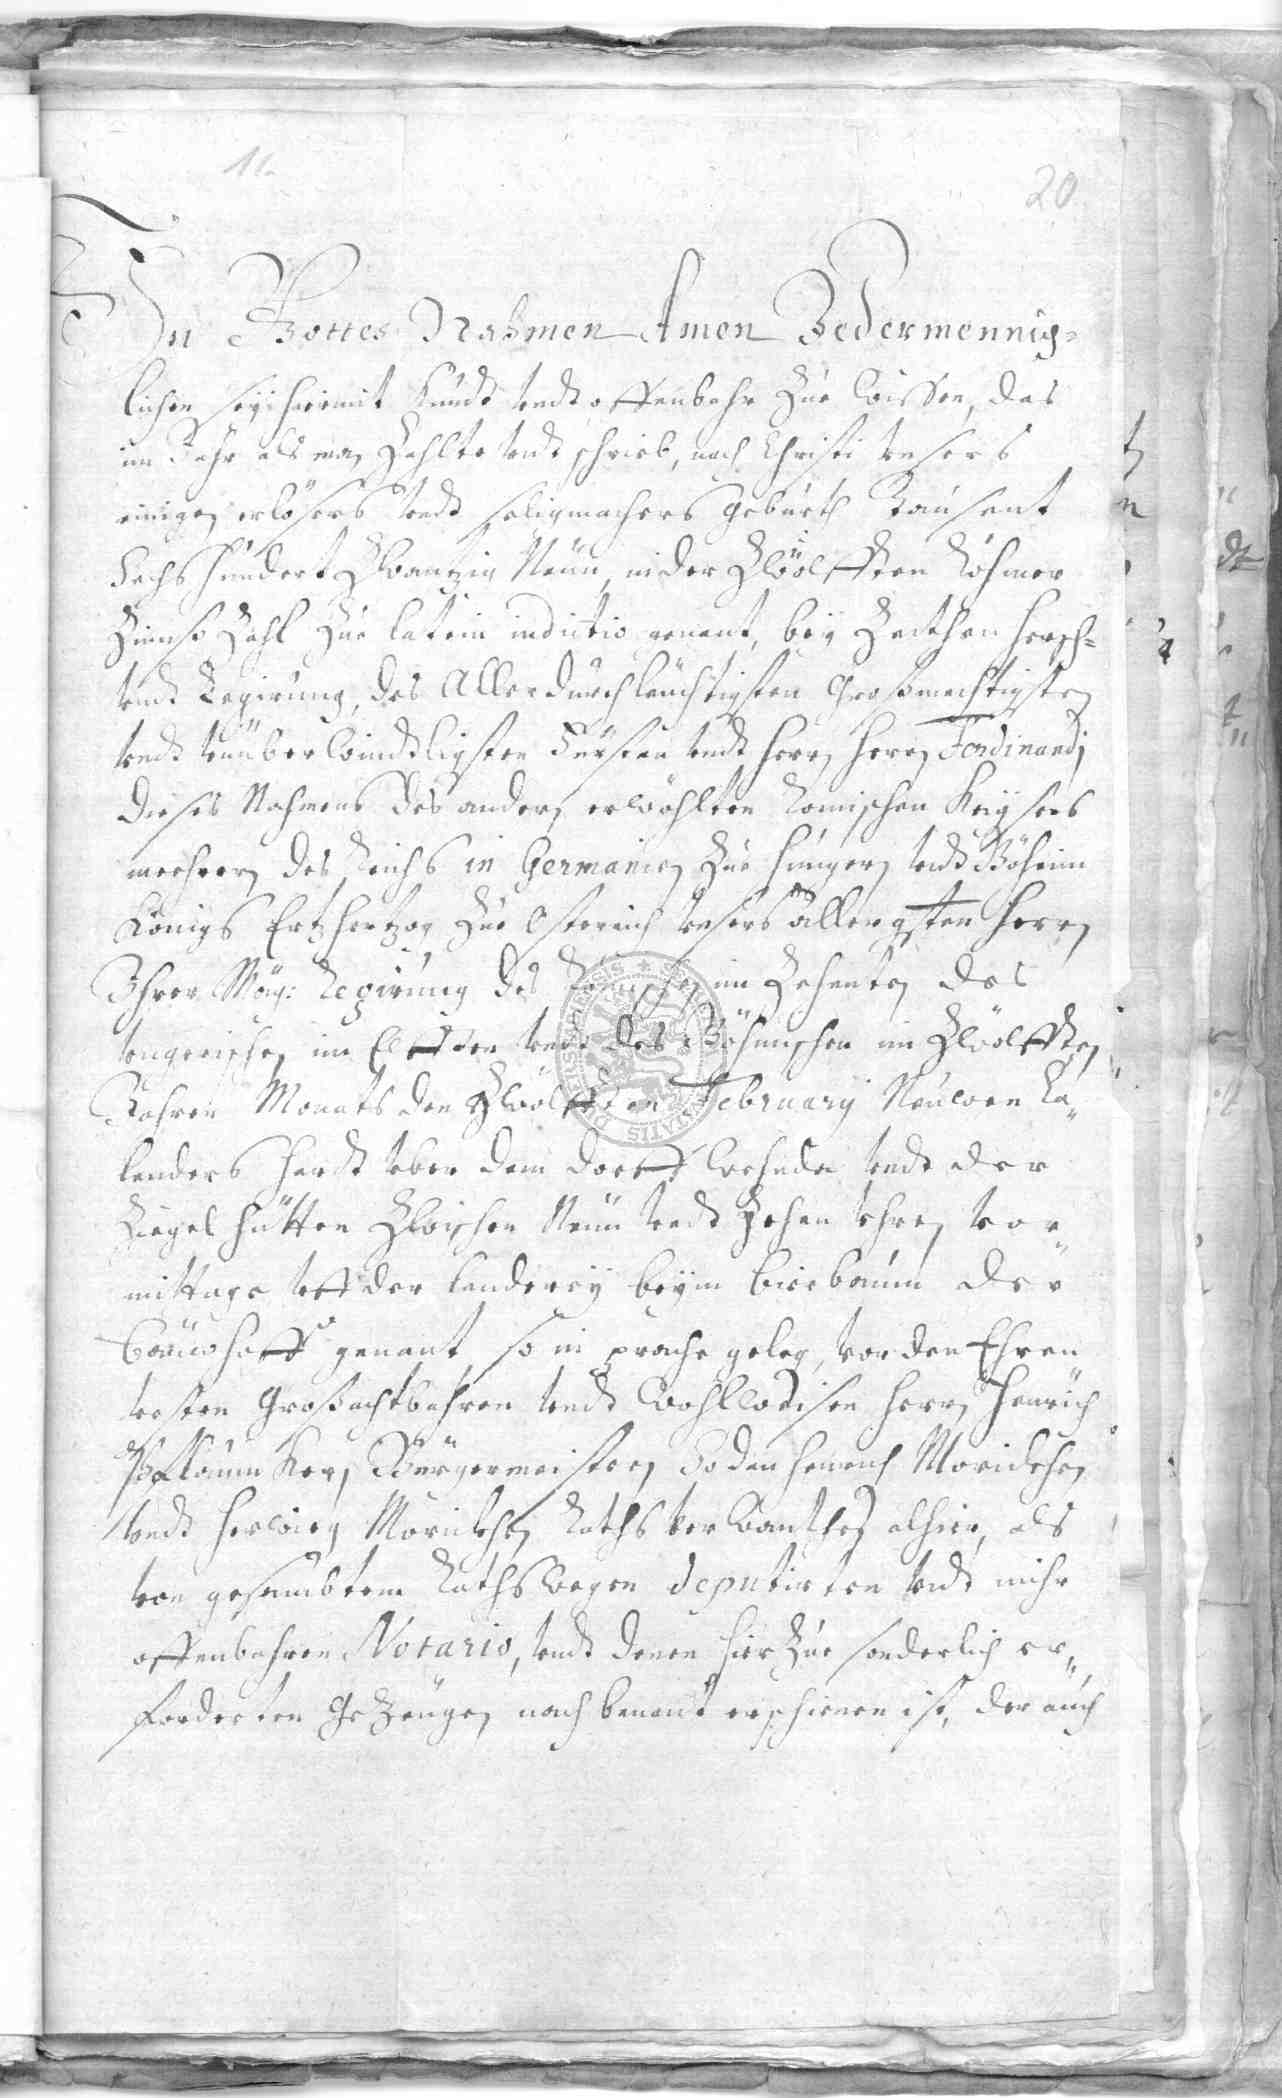 11.
20
In Gottes Nahmen Amen Jedermennig-
lichen seÿ hiermit Kundt undt offenbahr Zue wissen, das
im Jahr als man Zahlte undt schrieb, nach Christi unsers
einigen erlösers undt seligmachers geburth Tausent
Sechs hundert Zwantzig Neün, in der Zwölfften Röhmer
Zinnß Zahl Zue latein indictio genant, beÿ Zeithen hersch-
undt Regirung, des Allerdurchleuchtigsten Großmechtigsten
undt unüberwindtligsten Fürsten undt herrn herrn Ferdinandj
dieses Nahmens des andern erwöhlten Romischen Keÿsers
meehrern des Reichs in Germanien Zue hungern undt Böheim
Königs Ertzhertzog Zue Osterreich unsers allergsten herrn
Ihrer Maÿ: Regirung des Römischen im Zehenten des
ungerischen im Elfften undt des Böhmischen im Zwölfften
Jahren Monats den Zwölfften February Neüwen Ca-
lenders hardt uber dem dorff Wehnde undt der
Ziegel hütten Zwischen Neün undt Zehen uhren vor
mittags uff der lenderey beÿm birebaum der
genant, so in prache geleg, vor den Ehren
vesten Großachtbahren undt Wohllweisen herrn Henrich
Bürgermeistern Joden Henrich
undt Raths verwanthen alhier, als
von gesambtem Rathswegen deputirten undt mihr
offenbahren Notario, undt denen hier Zue sonderlich er-
forderten Gezeugen nach benant erschienen ist, der auch